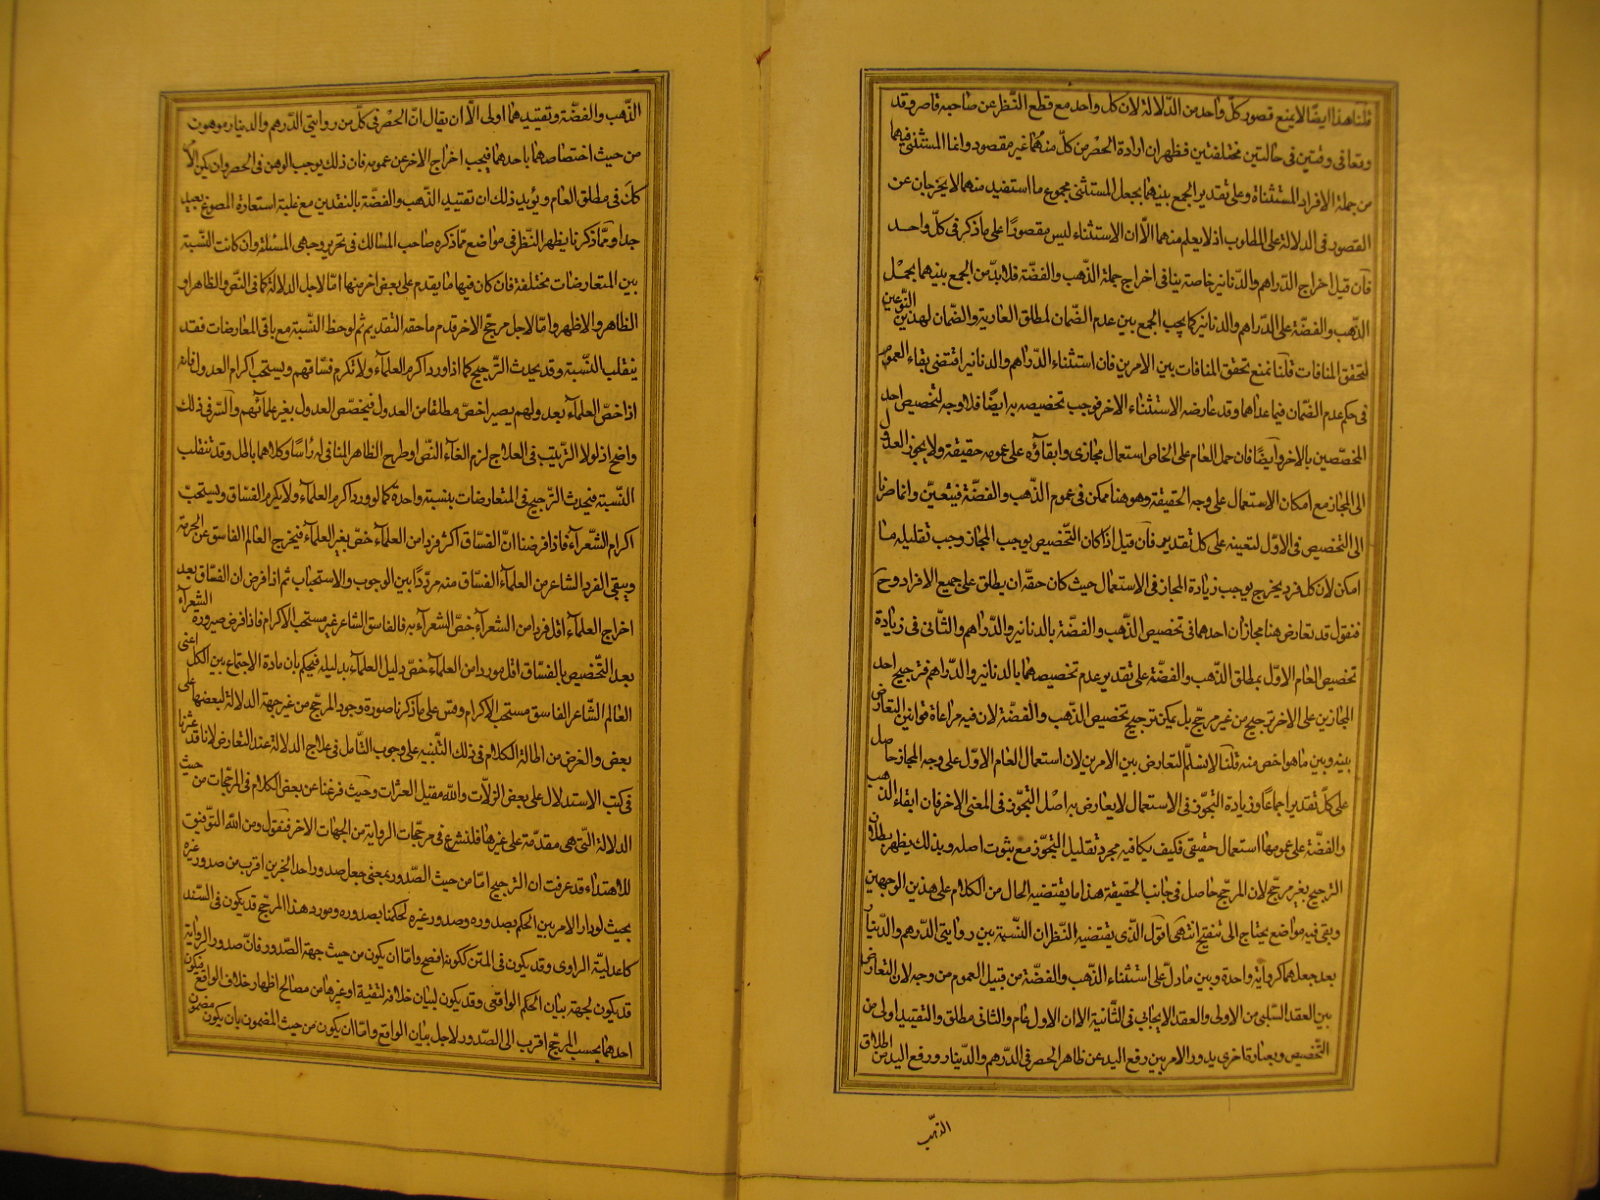 قلنا هذا ايضًا لا يمنع قصور كل واحد من الدّلالة لان كل واحد مع قطع النّظر عن صاحبه قاصر وقد
وقعا فى وقتين فى حالتين مختلفتين فظهر ان ارادة الحصر من كلّ منهما غير مقصود وانما المستثنى فيهما
من جملة الافراد المستثناة وعلى تقدير الجمع بينهما بجعل المستثنى مجموع ما استفيد منهما لا يخرجان عن
القصور فى الدلالة على المطلوب اذ لا يعلم منهما الّا ان الاستثناء ليس مقصورًا على ما ذكر فى كلّ واحد
فان قيل اخراج الدّراهم والدّنانير خاصة ينافى اخراج جملة الذّهب والفضّة فلا بدّ من الجمع بينهما بحمل
الذّهب والفضّة على الدّراهم والدنانير كما يجب الجمع بين عدم الضّمان لمطلق العارية والضّمان لهذين النّوعين
لتحقق المنافات قلنا نمنع تحقق المنافات بين الامرين فان استثناء الدّراهم والدنانير اقتضى بقاء العموم
فى حكم عدم الضّمان فيما عداهما وقد عارضه الاستثناء الاخر فوجب تخصيصه به ايضًا فلا وجه لتخصيص احد
المخصّصين بالاخر وايضًا فان حمل العام على الخاص استعمال مجازى وابقاؤه على عمومه حقيقة ولا يجوز العدول
الى المجاز مع امكان الاستعمال على وجه الحقيقة وهو هنا ممكن فى عموم الذّهب والفضّة فيتعيّن وانما صرنا
الى التخصيص فى الاوّل لتعينه على كل تقدير فان قيل اذا كان التّخصيص يوجب المجاز وجب تقليله ما
امكن لان كل فرد يخرج يوجب زيادة المجاز فى الاستعمال حيث كان حقّه ان يطلق على جميع الافراد وح
فنقول قد تعارض هنا مجازان احدهما فى تخصيص الذّهب والفضّة بالدنانير والدّراهم والثّانى فى زيادة
تخصيص العام الاوّل بمطلق الذّهب والفضّة على تقدير عدم تخصيصهما بالدنانير والدّراهم فترجيح احد
المجازين على الاخر ترجيح من غير مرجّح بل يمكن ترجيح تخصيص الذّهب والفضّة لان فيه مراعاة قوانين التّعارض
بينه وبين ما هو اخص منه قلنا لا نسلّم التّعارض بين الامرين لان استعمال العام الاوّل على وجه المجاز حاصل
على كلّ تقدير اجماعًا وزيادة التجوّز فى الاستعمال لا يعارض به اصل التجوّز فى المعنى الاخر فان ابقاء الذّهب
والفضّة على عمومها استعمال حقيقى فكيف يكافيه مجرد تقليل التجوّز مع ثبوت اصله وبذلك يظهر بطلان
الترجيح بغير مرجّح لان المرجّح حاصل فى جانب الحقيقة هذا ما يقتضيه الحال من الكلام على هذين الوجهين
وبقى فيه مواضع يحتاج الى تنقيح انتهى اقول الذّى يقتضيه النّظر ان النّسبة بين روايتى الدّرهم والدّينار
بعد جعلهما كرواية واحدة وبين ما دلّ على استثناء الذّهب والفضّة من قبيل العموم من وجه لان التّعارض
بين العقد السّلبى من الاولى والعقد الايجابى فى الثّانية الا ان الاول عام والثانى مطلق والتّقييد اولى من
التّخصيص وبعبارة اخرى يدور الامر بين رفع اليد عن ظاهر الحصر فى الدّرهم والدّينار ورفع اليد من اطلاق
الذّهب
الذّهب والفضّة وتقييدهما اولى الّا ان يقال انّ الحصر فى كلّ من روايتى الدّرهم والدينار موهون
من حيث اختصاصهما باحدهما فيجب اخراج الاخر عن عمومه فان ذلك يوجب الوهن فى الحصر وان لم يكن الامر
كك فى مطلق العام ويؤيد ذلك ان تقييد الذّهب والفضّة بالنقدين مع غلبة استعارة المصوغ بعيد
جدا وممّا ذكرنا يظهر النّظر فى مواضع ممّا ذكره صاحب المسالك فى تحرير وجهى المسئلة وان كانت النّسبة
بين المتعارضات مختلفة فان كان فيها ما يقدم على بعض اخر منها امّا لاجل الدلالة كما فى النّص والظاهر او
الظاهر والاظهر وامّا لاجل مرجّح الاخر قدم ما حقه التقديم ثم لوحظ النّسبة مع باقى المعارضات فقد
ينقلب النّسبة وقد يحدث الترّجيح كما اذا ورد اكرم العلمآء ولا تكرم فسّاقهم ويستحب اكرام العدول فانه
اذا خصّ العلمآء بعدولهم يصير اخصّ مطلقا من العدول فيخصّص العدول بغير علمائهم والسّر فى ذلك
واضح اذ لولا الترّتيب فى العلاج لزم الغآء النّص او طرح الظاهر المنافى له رأسًا وكلاهما باطل وقد تنقلب
النّسبة فيحدث الترّجيح فى المتعارضات بنسبة واحدة كما لو ورد اكرم العلمآء ولا يكرم الفسّاق ويستحبّ
اكرام الشّعرآء فاذا فرضنا انّ الفسّاق اكثر فردا من العلمآء خصّ بغير العلمآء فيخرج العالم الفاسق عن الحرمة
ويبقى الفرد الشاعر من العلمآء الفسّاق منه مردّدًا بين الوجوب والاستحباب ثم اذا فرض ان الفسّاق بعد
اخراج العلمآء اقل فردا من الشعرآء خصّ الشعرآء به فالفاسق الشاعر غير مستحب الاكرام فاذا فرض صيرورة الشعرآء
بعد التّخصيص بالفسّاق اقل موردا من العلمآء خصّ دليل العلمآء بدليله فيحكم بان مادة الاجتماع بين الكل اعنى
العالم الشّاعر الفاسق مستحب الاكرام وقس على ما ذكرنا صورة وجود المرجّح من غير جهة الدلالة لبعضها على
بعض والغرض من اطالة الكلام فى ذلك التّنبيه على وجوب التّأمل فى علاج الدلالة عند التعارض لانا قد عثرنا
فى كتب الاستدلال على بعض الزّلّات والله مقيل العثرات وحيث فرغنا عن بعض الكلام فى المرجّحات من حيث
الدلالة التّى هى مقدّمة على غيرها فلنشرع فى مرجّحات الرواية من الجهات الاخر فنقول ومن الله التّوفيق
للاهتداء قد عرفت ان الترّجيح امّا من حيث الصّدور بمعنى جعل صدور احد الخبرين اقرب من صدور غيره
بحيث لو دار الامر بين الحكم بصدوره وصدور غيره لحكمنا بصدوره ومورد هذا المرجّح قد يكون فى السّند
كاعدليّة الراوى وقد يكون فى المتن ككونه افصح وامّا ان يكون من حيث جهة الصّدور فانّ صدور الرواية
قد يكون لجهة بيان الحكم الواقعى وقد يكون لبيان خلافه لتقية او غيرها من مصالح اظهار خلاف الواقع فيكون
احدهما بحسب المرجّح اقرب الى الصّدور لاجل بيان الواقع وامّا ان يكون من حيث المضمون بان يكون مضمون